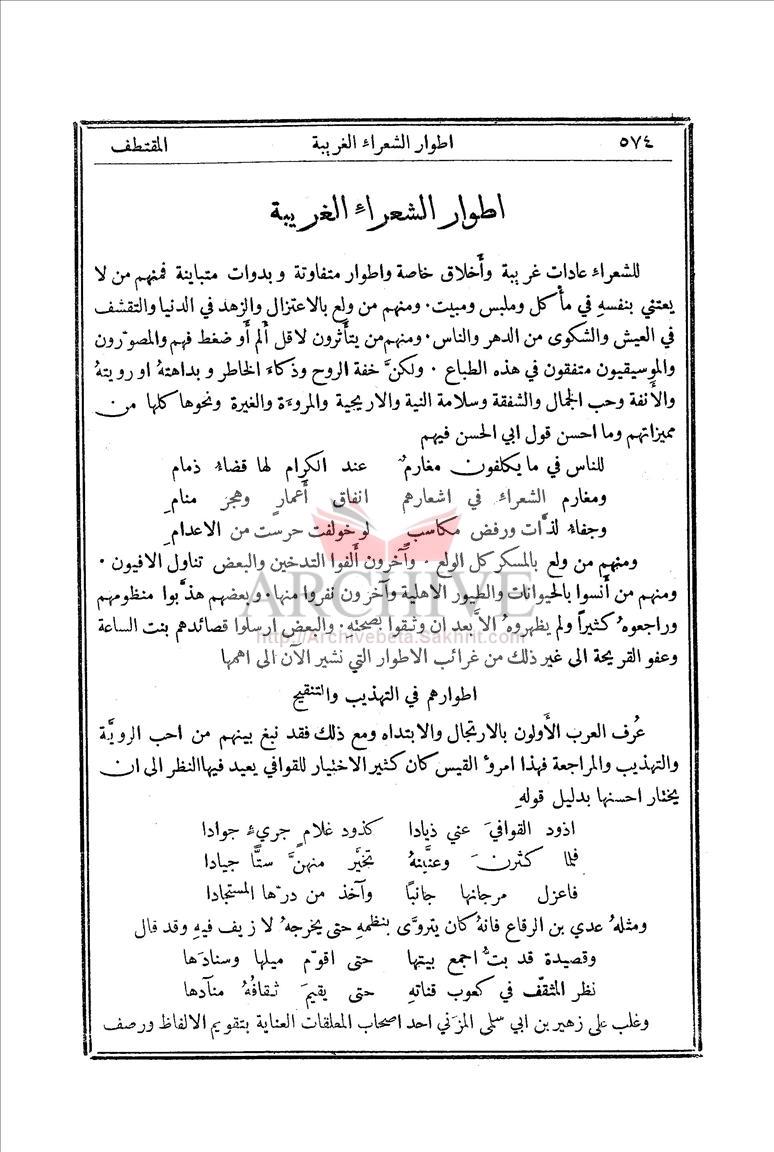 ٥٧٤ اطوار الشعراء الغريبة المقتطف
اطوار الشعراء الغريبة
للشعراء عادات غريبة وأخلاق خاصة واطوار متفاوتة وبدوات متباينة فمنهم من لا
يعتني بنفسهِ في مأكل وملبس ومبيت. ومنهم من ولع بالاعتزال والزهد في الدنيا والتقشف
في العيش والشكوى من الدهر والناس. ومنهم من يتأثرون لاقل ألم أو ضغط فهم والمصوّرون
والموسيقيون متفقون في هذه الطباع. ولكنَّ خفة الروح وذكاء الخاطر وبداهتهُ او رويتهُ
والأنفة وحب الجمال والشفقة وسلامة النية والاريحية والمروءة والغيرة ونحوها كلها من
مميزاتهم وما احسن قول ابي الحسن فيهم
للناس في ما يكلفون مغارمٌ عند الكرام لها قضاءُ ذمام
ومغارم الشعراء في اشعارهم انفاق أعمارٍ وهجر منامِ
وجفاءُ لذَّات ورفض مكاسب لو خولفت حرست من الاعدامِ
ومنهم من ولع بالمسكر كل الولع. وآخرون ألفوا التدخين والبعض تناول الافيون.
ومنهم من أنسوا بالحيوانات والطيور الاهلية وآخرون نفروا منها. وبعضهم هذَّبوا منظومهم
وراجعوهُ كثيراً ولم يظهروهُ الاَّ بعد ان وثقوا بصحتهِ. والبعض ارسلوا قصائدهم بنت الساعة
وعفو القريحة الى غير ذلك من غرائب الاطوار التي نشير الآن الى اهمها
اطوارهم في التهذيب والتنقيح
عُرف العرب الأولون بالارتجال والابتداه ومع ذلك فقد نبغ بينهم من احب الرويَّة
والتهذيب والمراجعة فهذا امروُ القيس كان كثير الاختيار للقوافي يعيد فيها النظر الى ان
يختار احسنها بدليل قولهِ
اذود القوافيَ عني ذيادا كذود غلامٍ جريءُ جوادا
فلما كثرنَ وعنَّينهُ تخيَّر منهنَّ ستًّا جيادا
فاعزل مرجانها جانباً وآخذ من درّها المستجادا
ومثلهُ عدي بن الرقاع فانهُ كان يتروَّى بنظمهِ حتى يخرجهُ لا زيف فيهِ وقد قال
وقصيدة قد بتُّ اجمع بيتها حتى اقوّم ميلها وسنادَها
نظر المثقّف في كعوب قناتهِ حتى يقيمَ ثقافُهُ منآدها
وغلب على زهير بن ابي سلمى المزني احد اصحاب المعلقات العناية بتقويم الالفاظ ورصف
ARCHIVE
http://Archivebeta.Sakhrit.com